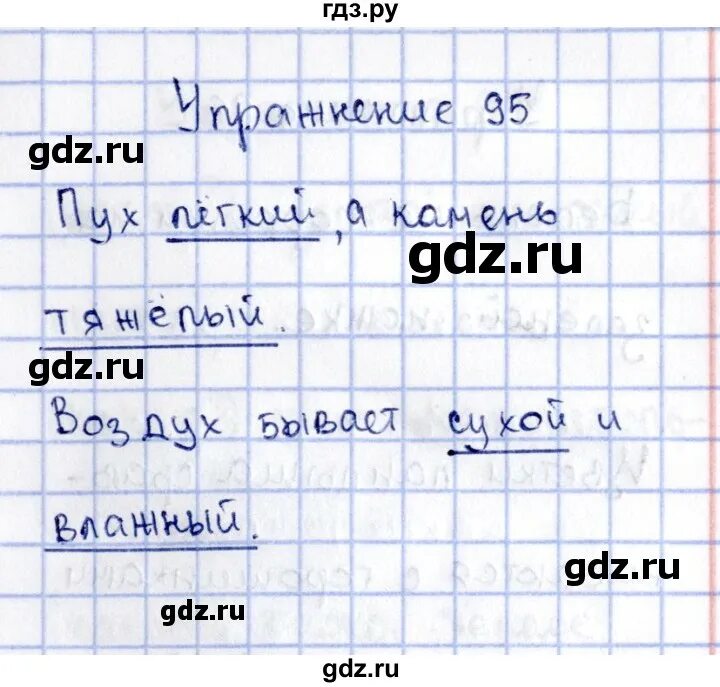 гдз.ру
Упражнение 95
gdz.ru
Пух лёгкий, а камень
gdz.ru
тяжёлый.
gdz.ru
Воздух бывает сухой и
влажный.
gdz.ru
gdz.ru
gdz.ru